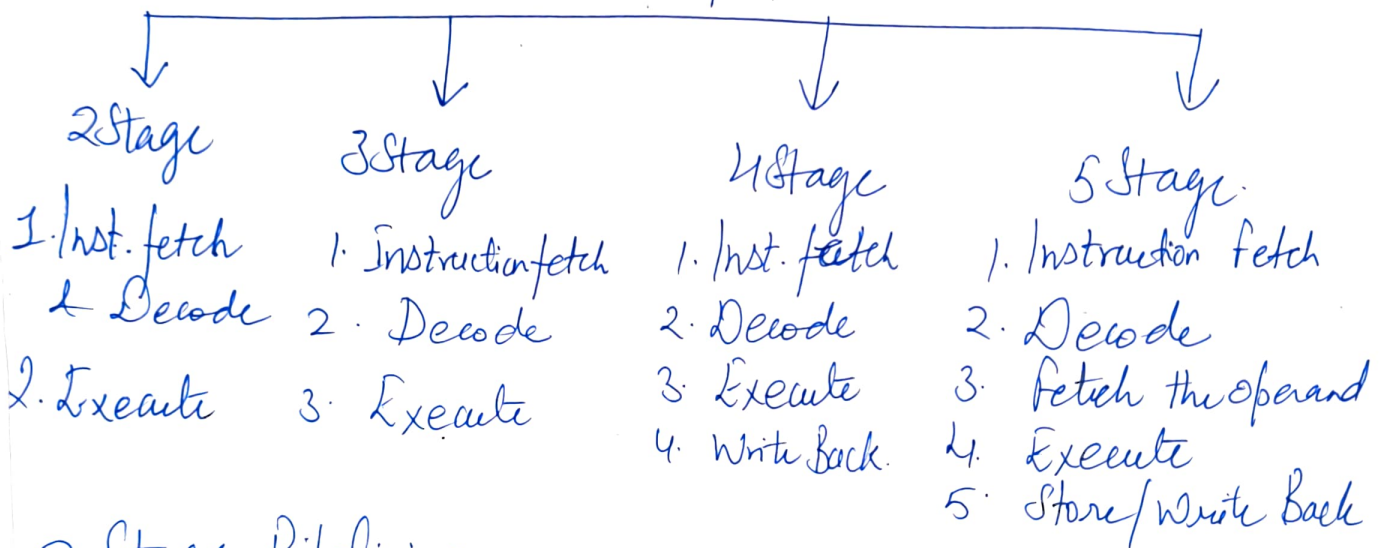 2 Stage
1. Inst. fetch
& Decode
2. Execute
3 Stage
1. Instruction fetch
2. Decode
3. Execute
4 Stage
1. Inst. fetch
2. Decode
3. Execute
4. Write Back.
5 Stage.
1. Instruction fetch
2. Decode
3. Fetch the operand
4. Execute
5. Store/Write Back